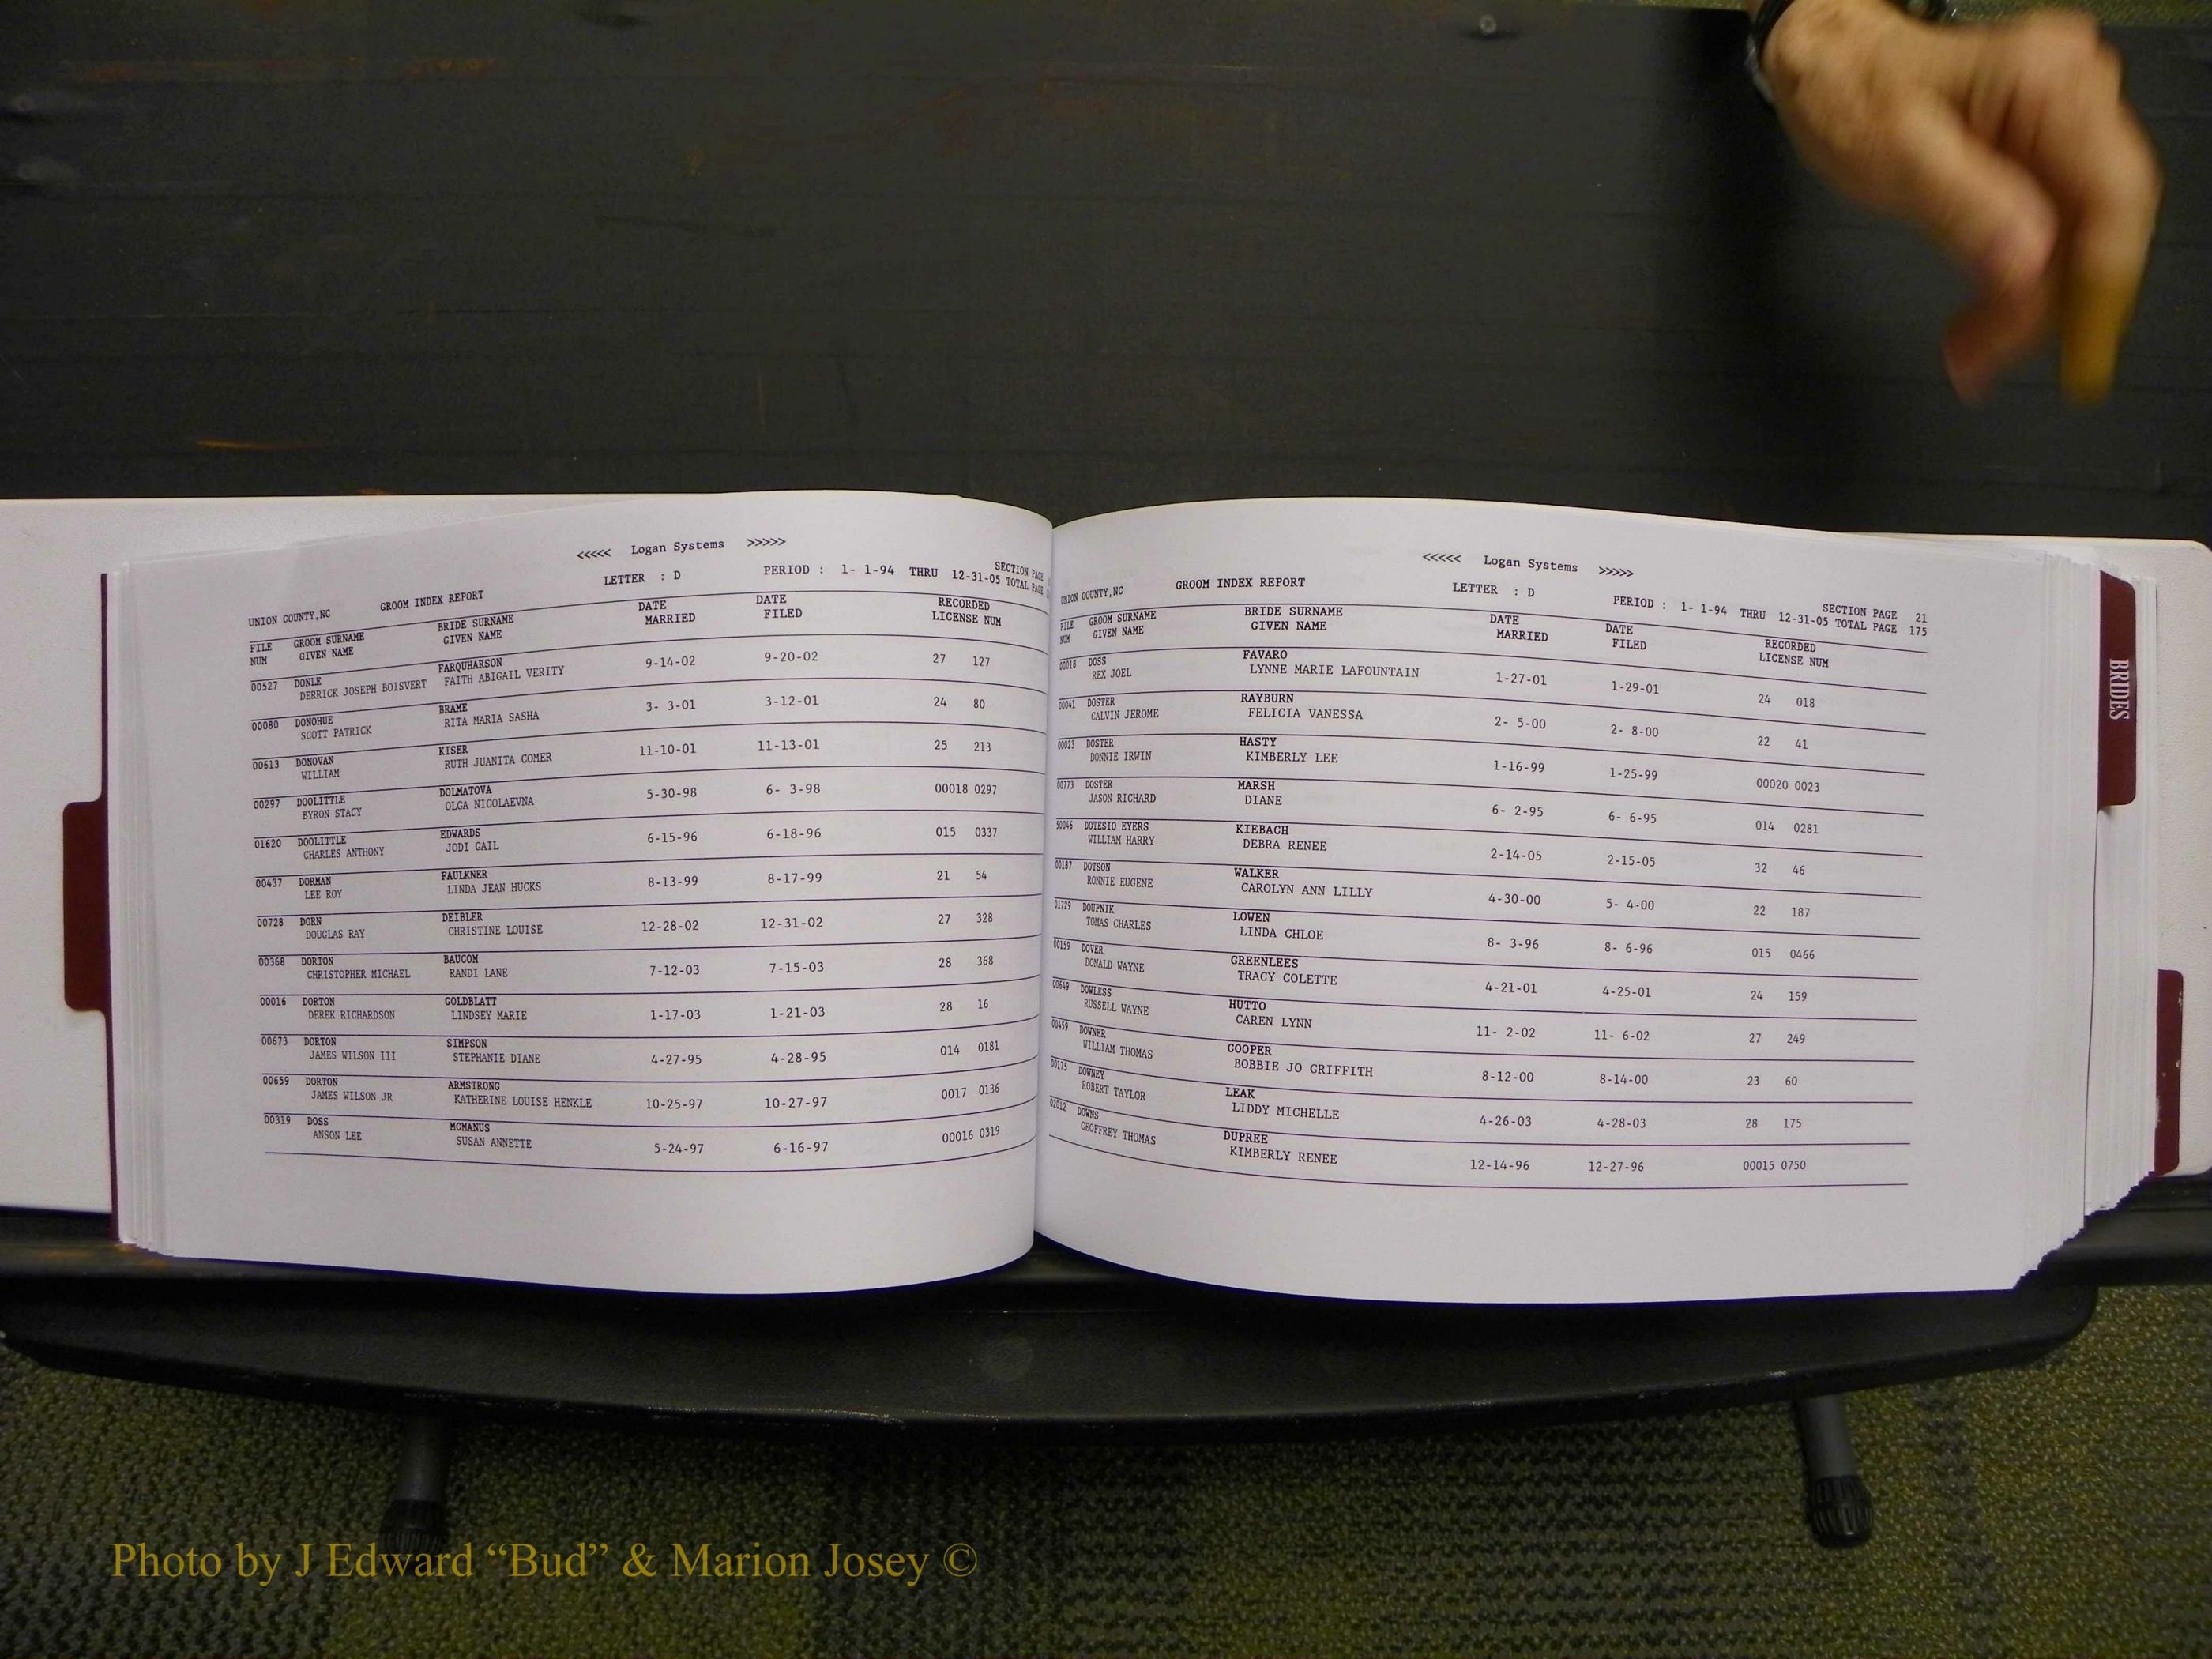 <<<<< Logan Systems >>>>>
LETTER : D PERIOD : 1- 1-94 THRU 12-31-05
SECTION PAGE
TOTAL PAGE
UNION COUNTY,NC GROOM INDEX REPORT
FILE GROOM SURNAME BRIDE SURNAME DATE DATE RECORDED
NUM GIVEN NAME GIVEN NAME MARRIED FILED LICENSE NUM
00527 DONLE FARQUHARSON 9-14-02 9-20-02 27 127
DERRICK JOSEPH BOISVERT FAITH ABIGAIL VERITY
00080 DONOHUE BRAME 3- 3-01 3-12-01 24 80
SCOTT PATRICK RITA MARIA SASHA
00613 DONOVAN KISER 11-10-01 11-13-01 25 213
WILLIAM RUTH JUANITA COMER
00297 DOOLITTLE DOLMATOVA 5-30-98 6- 3-98 00018 0297
BYRON STACY OLGA NICOLAEVNA
01620 DOOLITTLE EDWARDS 6-15-96 6-18-96 015 0337
CHARLES ANTHONY JODI GAIL
00437 DORMAN FAULKNER 8-13-99 8-17-99 21 54
LEE ROY LINDA JEAN HUCKS
00728 DORN DEIBLER 12-28-02 12-31-02 27 328
DOUGLAS RAY CHRISTINE LOUISE
00368 DORTON BAUCOM 7-12-03 7-15-03 28 368
CHRISTOPHER MICHAEL RANDI LANE
00016 DORTON GOLDBLATT 1-17-03 1-21-03 28 16
DEREK RICHARDSON LINDSEY MARIE
00673 DORTON SIMPSON 4-27-95 4-28-95 014 0181
JAMES WILSON III STEPHANIE DIANE
00659 DORTON ARMSTRONG 10-25-97 10-27-97 0017 0136
JAMES WILSON JR KATHERINE LOUISE HENKLE
00319 DOSS MCMANUS 5-24-97 6-16-97 00016 0319
ANSON LEE SUSAN ANNETTE
<<<<< Logan Systems >>>>>
LETTER : D PERIOD : 1- 1-94 THRU 12-31-05
SECTION PAGE 21
TOTAL PAGE 175
UNION COUNTY,NC GROOM INDEX REPORT
FILE GROOM SURNAME BRIDE SURNAME DATE DATE RECORDED
NUM GIVEN NAME GIVEN NAME MARRIED FILED LICENSE NUM
00018 DOSS FAVARO 1-27-01 1-29-01 24 018
REX JOEL LYNNE MARIE LAFOUNTAIN
00041 DOSTER RAYBURN 2- 5-00 2- 8-00 22 41
CALVIN JEROME FELICIA VANESSA
00023 DOSTER HASTY 1-16-99 1-25-99 00020 0023
DONNIE IRWIN KIMBERLY LEE
00773 DOSTER MARSH 6- 2-95 6- 6-95 014 0281
JASON RICHARD DIANE
50046 DOTESIO EYERS KIEBACH 2-14-05 2-15-05 32 46
WILLIAM HARRY DEBRA RENEE
00187 DOTSON WALKER 4-30-00 5- 4-00 22 187
RONNIE EUGENE CAROLYN ANN LILLY
01729 DOUPNIK LOWEN 8- 3-96 8- 6-96 015 0466
TOMAS CHARLES LINDA CHLOE
00159 DOVER GREENLEES 4-21-01 4-25-01 24 159
DONALD WAYNE TRACY COLETTE
00649 DOWLESS HUTTO 11- 2-02 11- 6-02 27 249
RUSSELL WAYNE CAREN LYNN
00459 DOWNER COOPER 8-12-00 8-14-00 23 60
WILLIAM THOMAS BOBBIE JO GRIFFITH
00175 DOWNEY LEAK 4-26-03 4-28-03 28 175
ROBERT TAYLOR LIDDY MICHELLE
02012 DOWNS DUPREE 12-14-96 12-27-96 00015 0750
GEOFFREY THOMAS KIMBERLY RENEE
BRIDES
Photo by J Edward “Bud” & Marion Josey ©